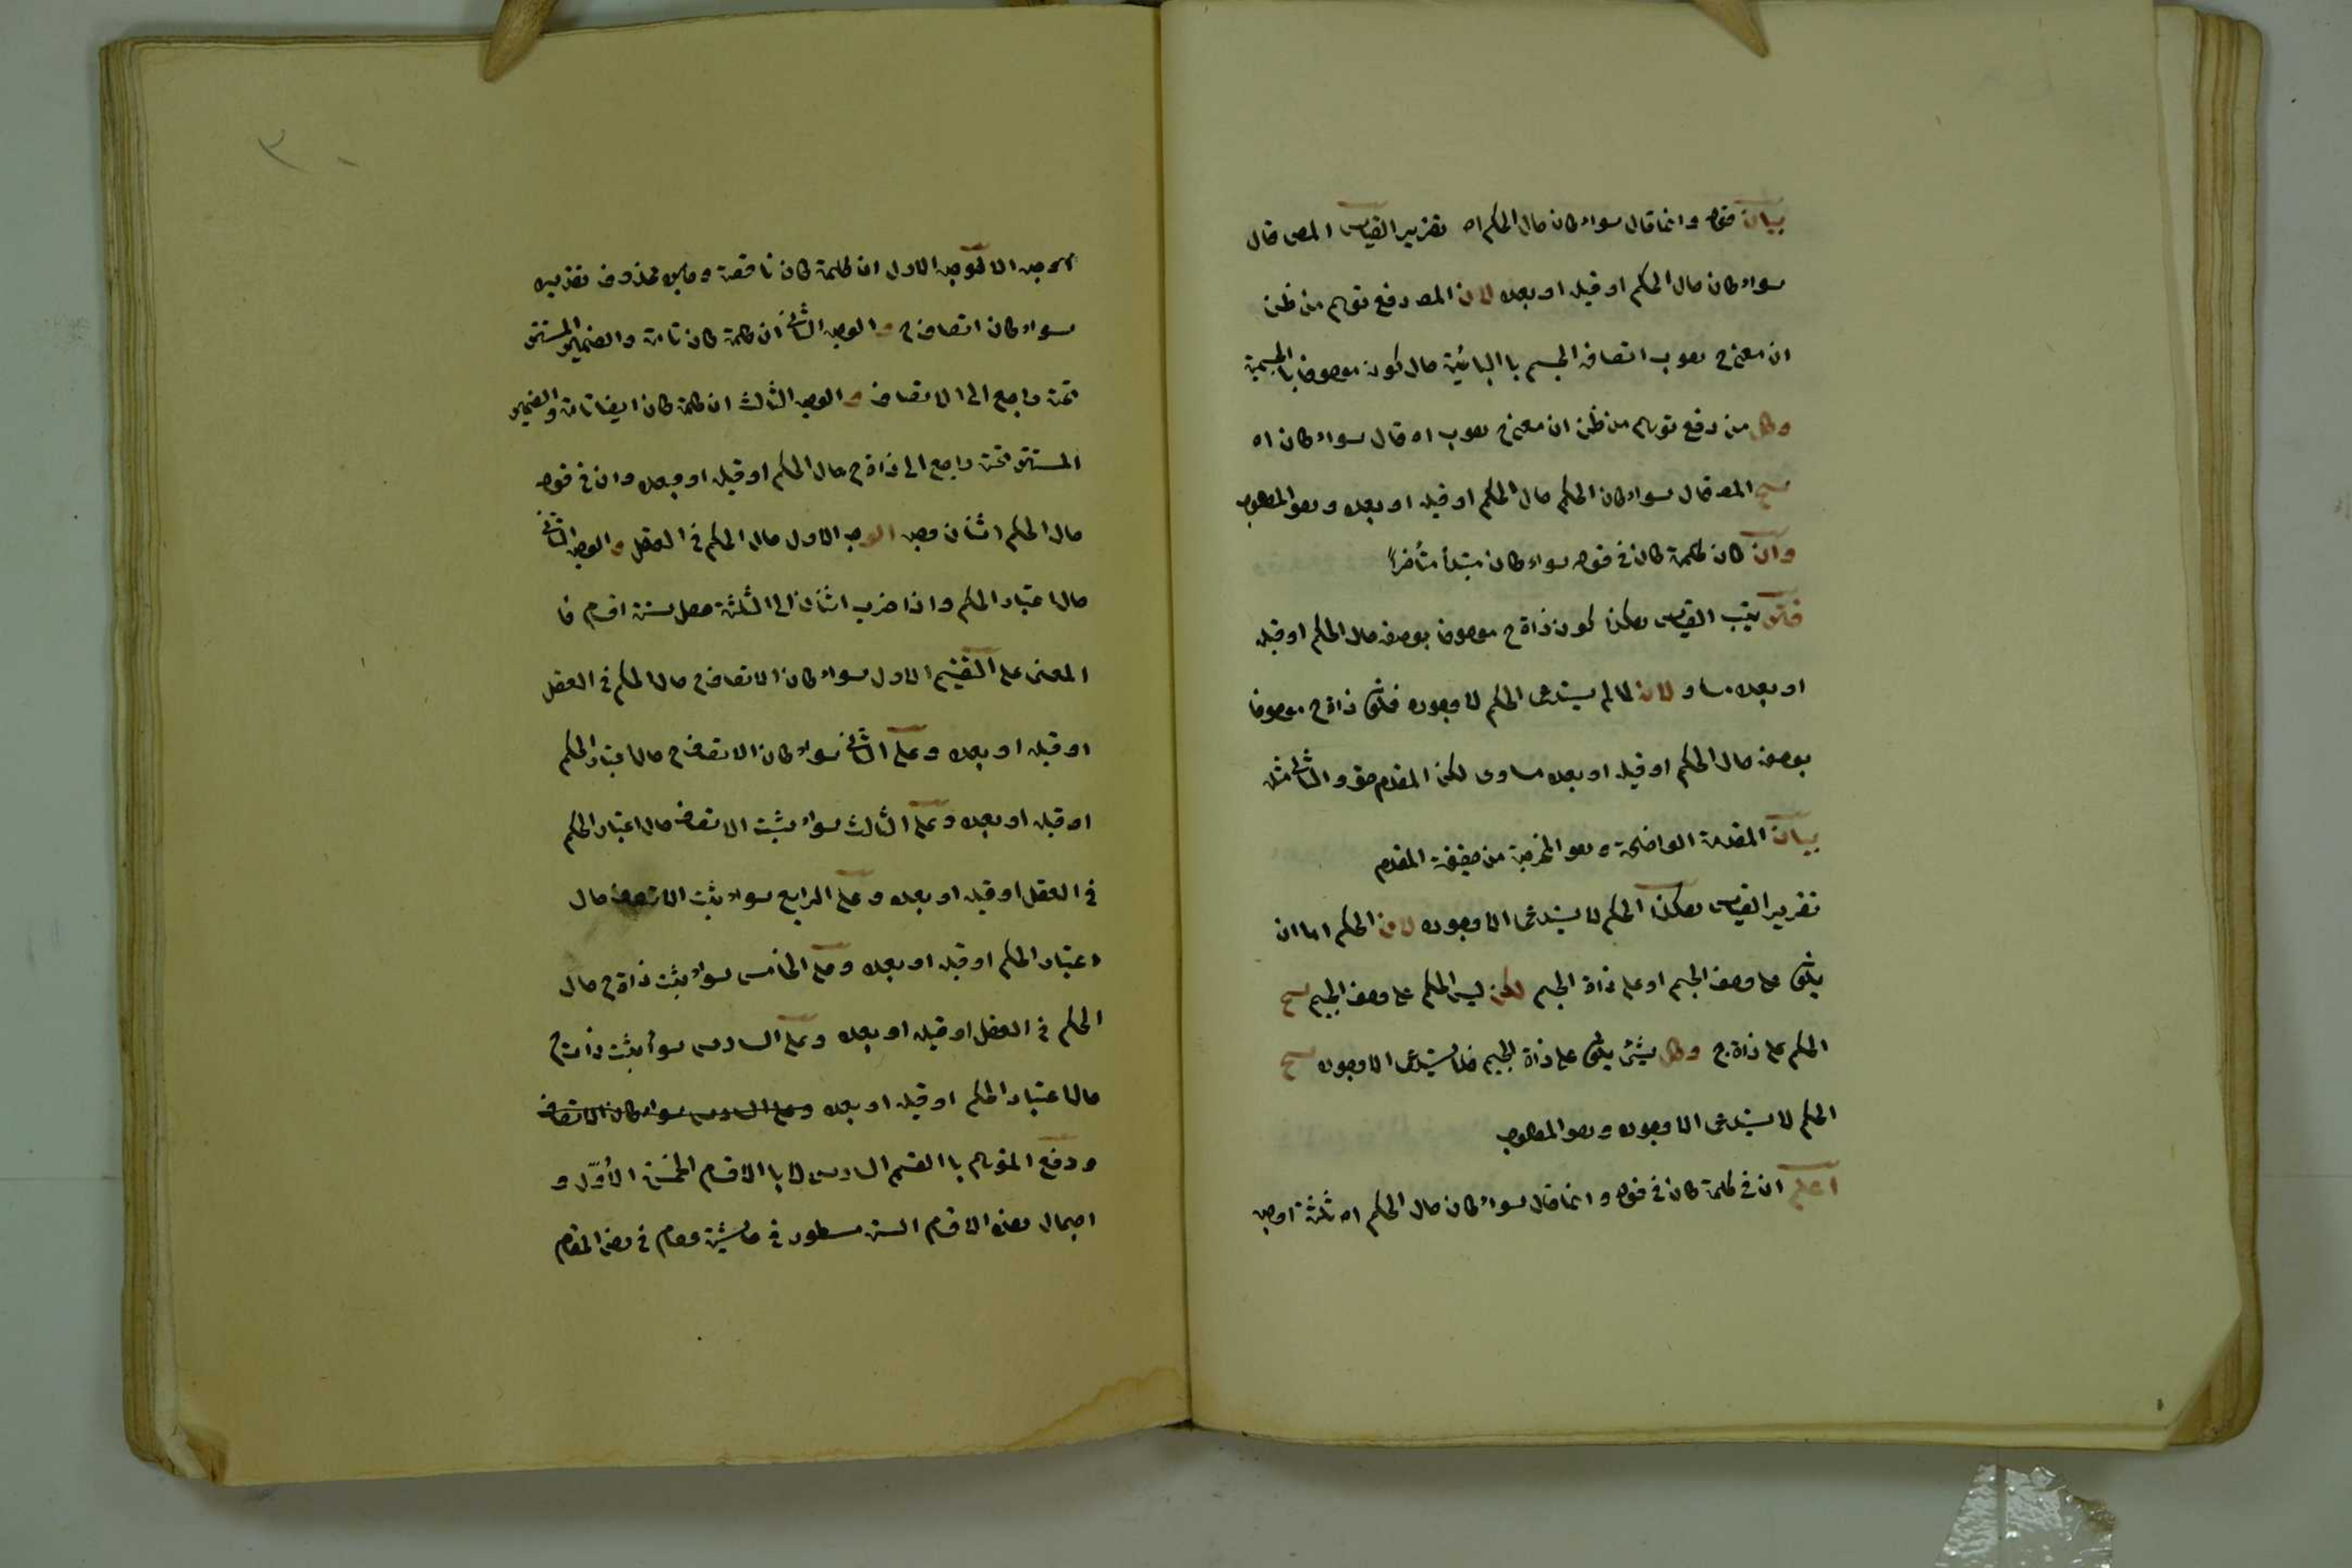 بيان قوله وانما قال سواء كان حال الحكم اه تقرير القياس المص قال
سواء كان حال الحكم او قبله او بعده لان المص دفع توهم من ظن
ان معنى ج هو ب اتصاف الجسم با البائية حال كونه موصوفا بالجيمية
وكل من دفع توهم من ظن ان معنى ج هو ب اه قال سواء كان اه
ينتج المص قال سواء كان الحكم حال الحكم او قبله او بعده وهو المطلوب
وان كان كلمة كان في قوله سواء كان مبتدأ متأخراً
ترتيب القياس هكذا كون ذاة ج موصوفا بوصفه حال الحكم او قبله
او بعده مساو لان لما لم يستدعى الحكم الا وجوده فكون ذاة ج موصوفا
بوصفه حال الحكم او قبله او بعده مساوى لكن المقدم حق و التالى مثله
بيان المقدمة الواضحة وهو المخرجة من حقيقة المقدم
تقرير القياس هكذا الحكم لا يستدعى الا وجوده لان الحكم اما ان
يكون على وصف الجيم او على ذاة الجيم لكن ليس الحكم على وصف الجيم ينتج
الحكم على ذاة ج وكل شيئ يكون على ذاة الجيم فلا يستدعى الا وجوده ينتج
الحكم لا يستدعى الا وجوده وهو المطلوب
اعلم ان في كلمة كان في قوله وانما قال سواء كان حال الحكم اه ثلثة اوجه
الوجه الاول ان كلمة كان ناقصة و محذوف تقديره
سواء كان اتصاف ج و الوجه الثانى ان كلمة كان تامة والضمير المستتر
تحته راجع الى الاتصاف و الوجه الثالث ان كلمة كان ايضا تامة والضمير
المستتر تحته راجع الى ذاة ج حال الحكم او قبله او بعده وان في قوله
حال الحكم اثنان وجه الوجه الاول حال الحكم في العقل و الوجه الثانى
حال اعتبار الحكم واذا ضرب اثنان الى الثلثة حصل ستة اقسام فا
المعنى على التقسيم الاول سواء كان الاتصاف ج حال الحكم في العقل
او قبله او بعده وعلى الثانى سواء كان الاتصاف ج حال اعتبار الحكم
او قبله او بعده وعلى الثالث سواء يثبت الاتصاف حال اعتبار الحكم
في العقل او قبله او بعده وعلى الرابع سواء يثبت الاتصاف حال
اعتبار الحكم او قبله او بعده وعلى الخامس سواء يثبت ذاة ج حال
الحكم في العقل او قبله او بعده وعلى السادس سواء يثبت ذات ج
حال اعتبار الحكم او قبله او بعده وعلى السادس سواء كان الاتصاف
ودفع المتوهم با القسم السادس لا با الاقسام الخمسة الأوّل و
اجمال هذه الاقسام الستة مسطور في حاشية في هذا المقام